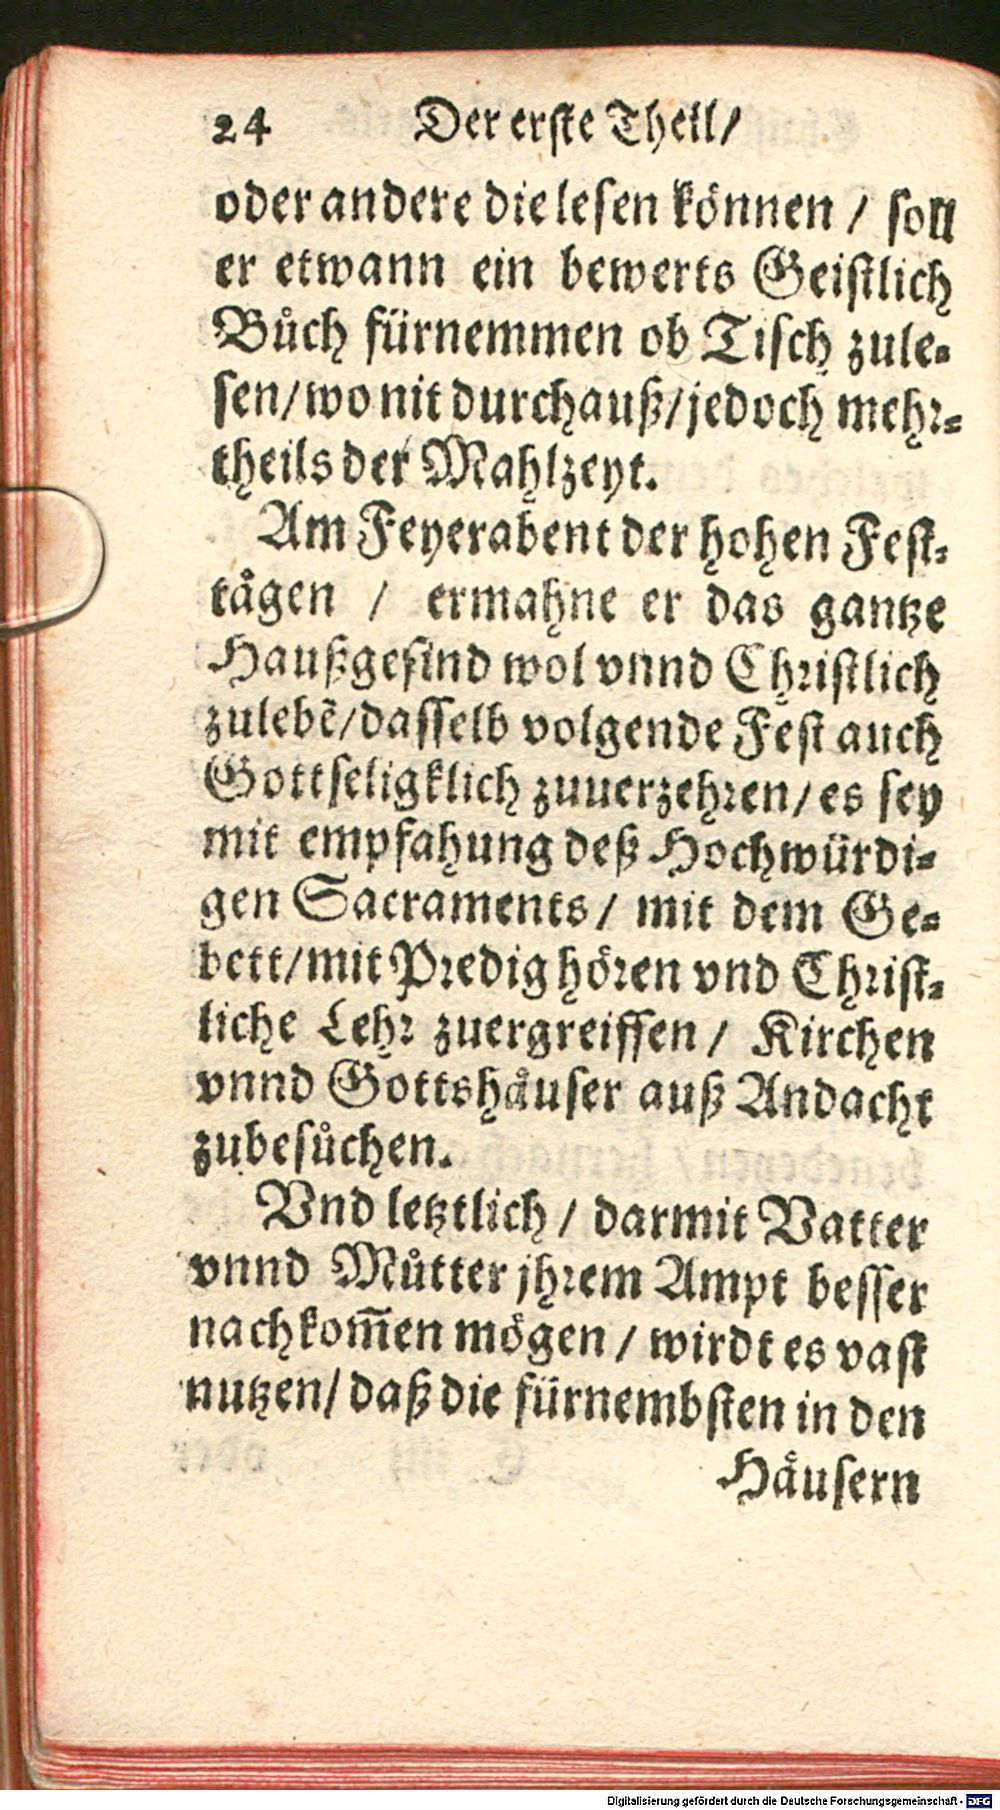 24 Der erste Theil/
oder andere die lesen können / soll
er etwann ein bewerts Geistlich
Bůch fürnemmen ob Tisch zule⸗
sen/wo nit durchauß/jedoch mehr⸗
theils der Mahlzeyt.
Am Feyerabent der hohen Fest⸗
tågen / ermahne er das gantze
Haußgesind wol vnnd Christlich
zulebẽ/dasselb volgende Fest auch
Gottseligklich zuuerzehren/es sey
mit empfahung deß Hochwürdi⸗
gen Sacraments/ mit dem Ge⸗
bett/mit Predig hören vnd Christ⸗
liche Lehr zuergreiffen / Kirchen
vnnd Gottshåuser auß Andacht
zubesůchen.
Vnd letztlich / darmit Vatter
vnnd Můtter jhrem Ampt besser
nachkom̃en mögen / wirdt es vast
nutzen/ daß die fürnembsten in den
Håusern
Digitalisierung gefördert durch die Deutsche Forschungsgemeinschaft - DFG